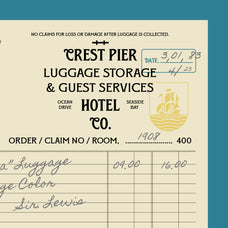 NO CLAIMS FOR LOSS OR DAMAGE AFTER LUGGAGE IS COLLECTED.
CREST PIER
DATE, 3,01, 83
4/23
LUGGAGE STORAGE
& GUEST SERVICES
OCEAN DRIVE HOTEL SEASIDE BAY
CO.
ORDER / CLAIM NO / ROOM, 1908 400
a" Luggage 09.00 16.00
ge Color
Sir. Lewis